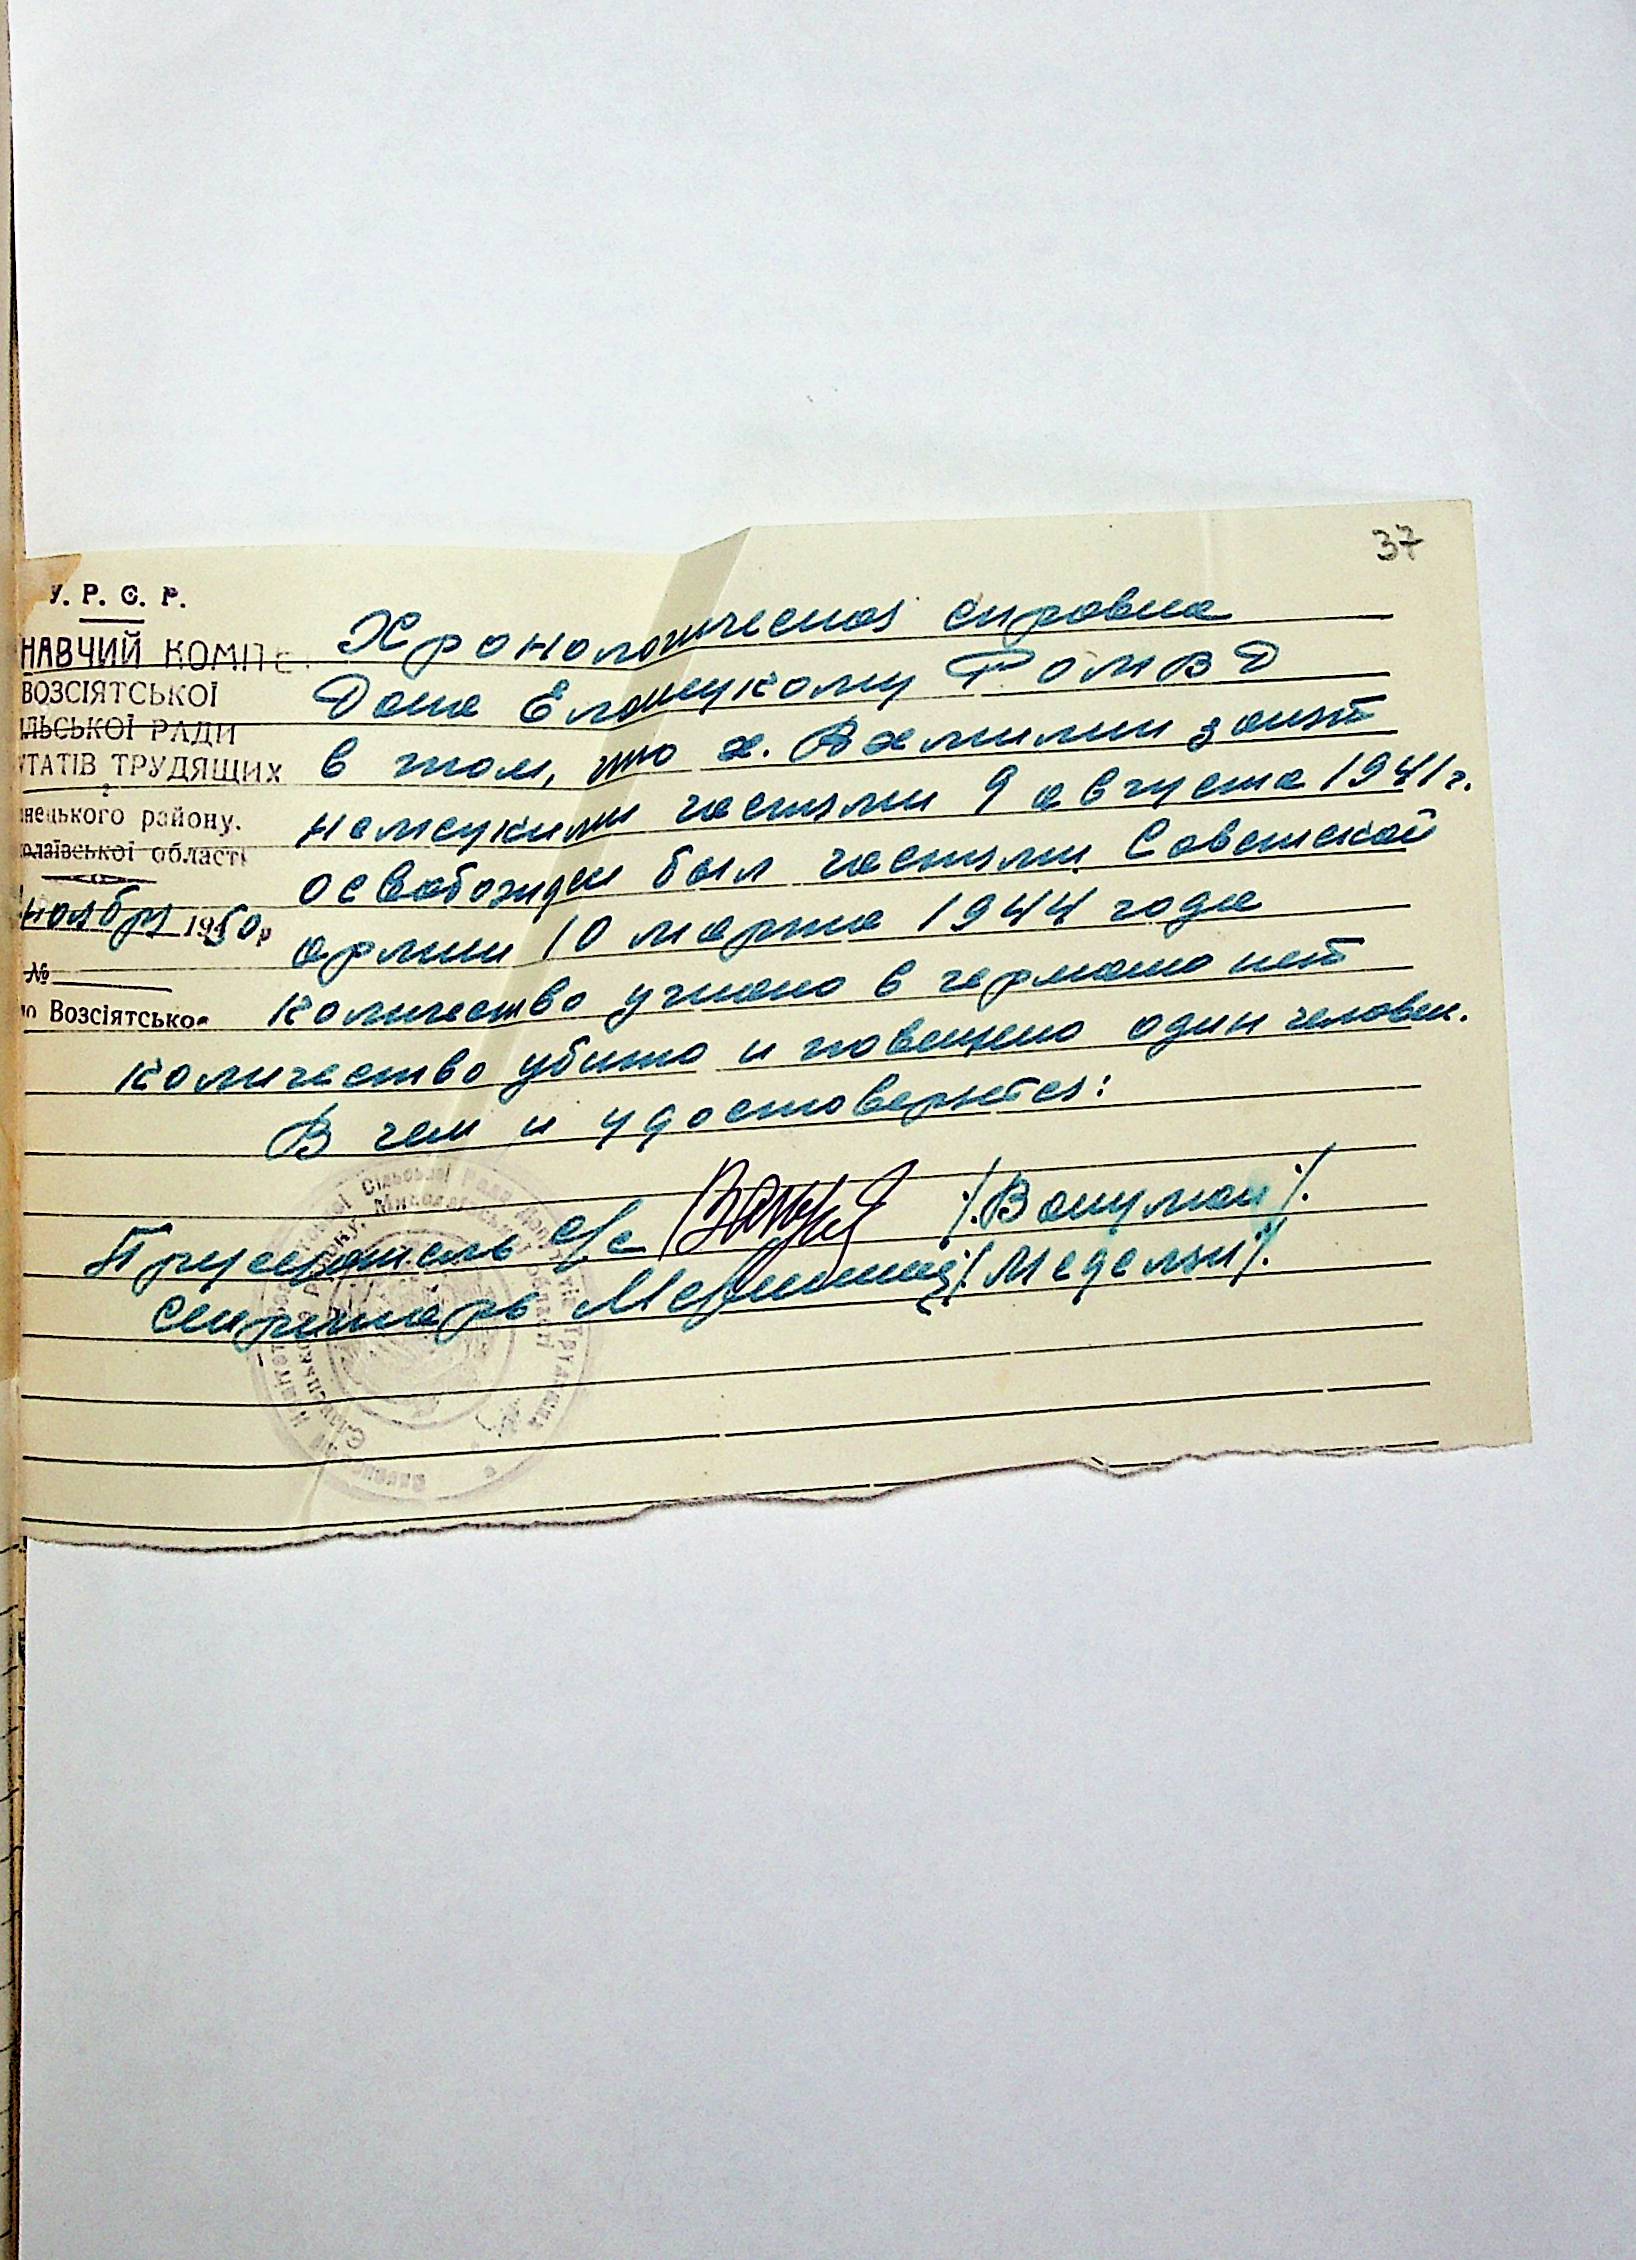 37
У. Р. С. Р.
НАВЧИЙ КОМІТЕ
ВОЗСІЯТСЬКОЇ
ЛЬСЬКОЇ РАДИ
УТАТІВ ТРУДЯЩИХ
нецького району.
олаївської області
ноября 1950 р
№
Возсіятсько
Хронологическая справка
Дана Еланецкому РОМВД
в том, что х. занят
немецкими частями 9 августа 1941 г.
освобожден был частями Советской
армии 10 марта 1944 года
количество угнано в германию нет
количество убито и повешено один человек.
В чем и удостоверяется:
Председатель с/с /Вакулман/.
секретарь /Медельян/.
Сільської Ради Депутатів Трудящих
району, Миколаївської області